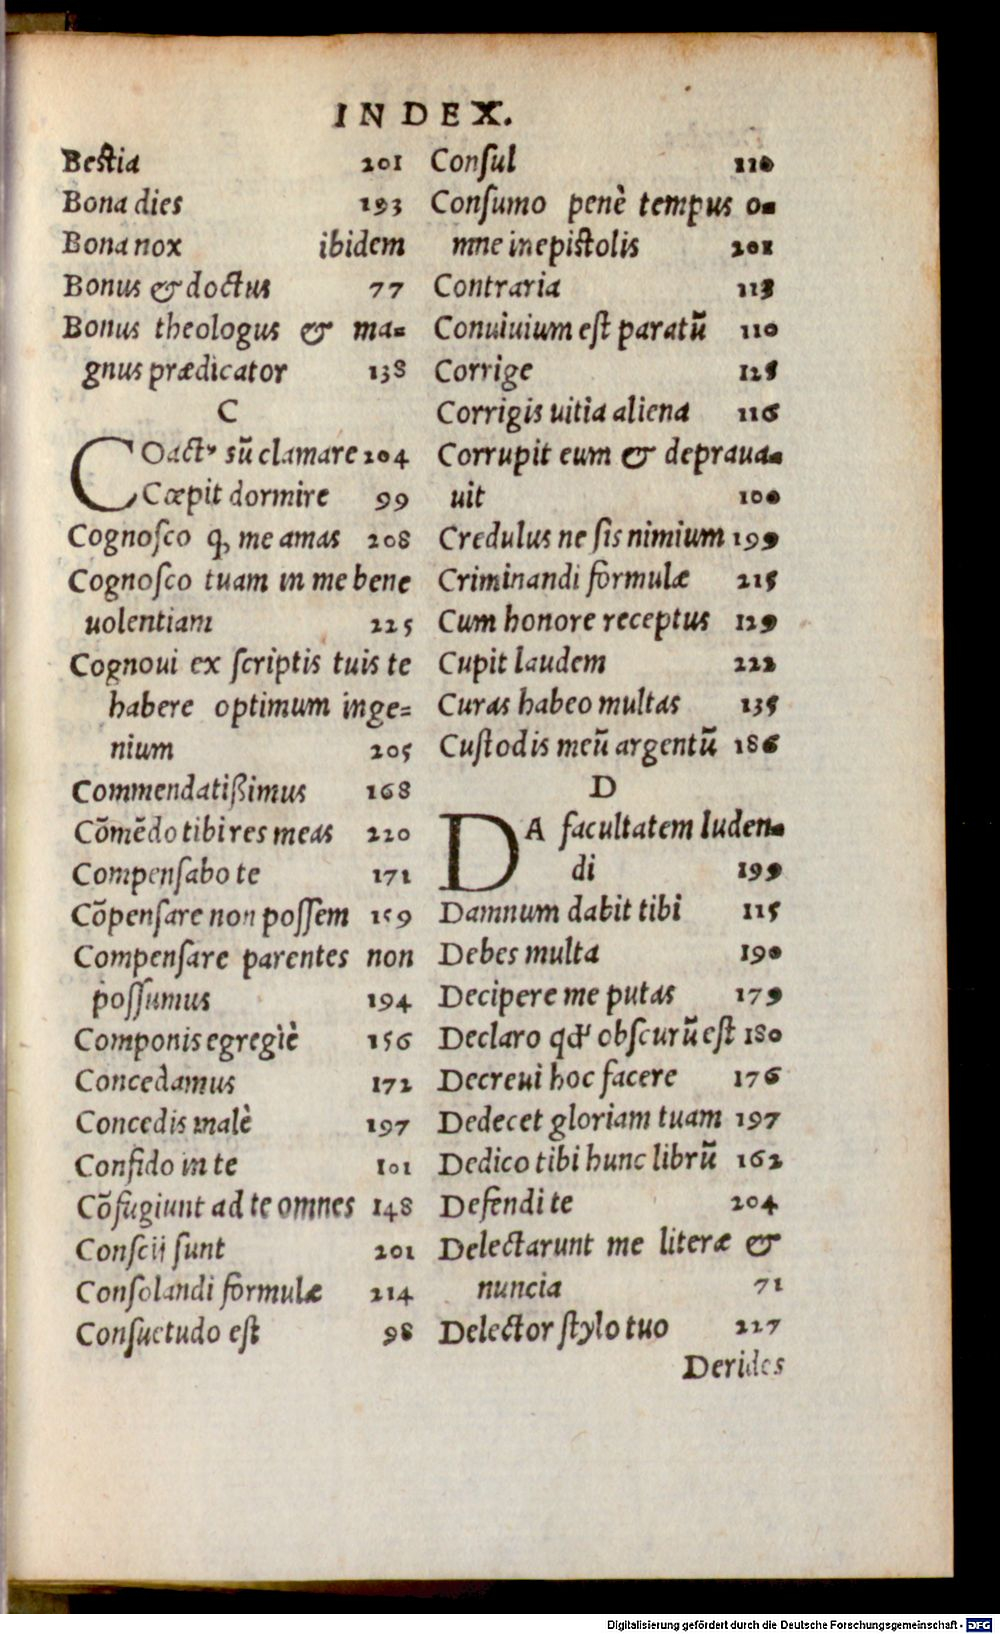 INDEX.
Bestia 201
Bona dies 193
Bona nox ibidem
Bonus & doctus 77
Bonus theologus & ma=
gnus prædicator 138
C
COactꝰ sũ clamare 204
Cœpit dormire 99
Cognoſco ꝙ me amas 208
Cognoſco tuam in me bene
uolentiam 225
Cognoui ex ſcriptis tuis te
habere optimum inge=
nium 205
Commendatißimus 168
Cõmẽdo tibi res meas 220
Compenſabo te 171
Cõpenſare non poſſem 159
Compenſare parentes non
poſſumus 194
Componis egregiè 156
Concedamus 172
Concedis malè 197
Confido in te 101
Cõfugiunt ad te omnes 148
Conſcij ſunt 201
Conſolandi formulæ 214
Conſuetudo eſt 98
Conſul 110
Conſumo penè tempus o=
mne in epiſtolis 201
Contraria 113
Conuiuium eſt paratũ 110
Corrige 125
Corrigis uitia aliena 116
Corrupit eum & depraua=
uit 100
Credulus ne ſis nimium 199
Criminandi formulæ 215
Cum honore receptus 129
Cupit laudem 222
Curas habeo multas 135
Cuſtodis meũ argentũ 186
D
DA facultatem luden=
di 199
Damnum dabit tibi 115
Debes multa 190
Decipere me putas 179
Declaro qđ obſcurũ eſt 180
Decreui hoc facere 176
Dedecet gloriam tuam 197
Dedico tibi hunc librũ 162
Defendi te 204
Delectarunt me literæ &
nuncia 71
Delector ſtylo tuo 227
Derides
Digitalisierung gefördert durch die Deutsche Forschungsgemeinschaft - DFG